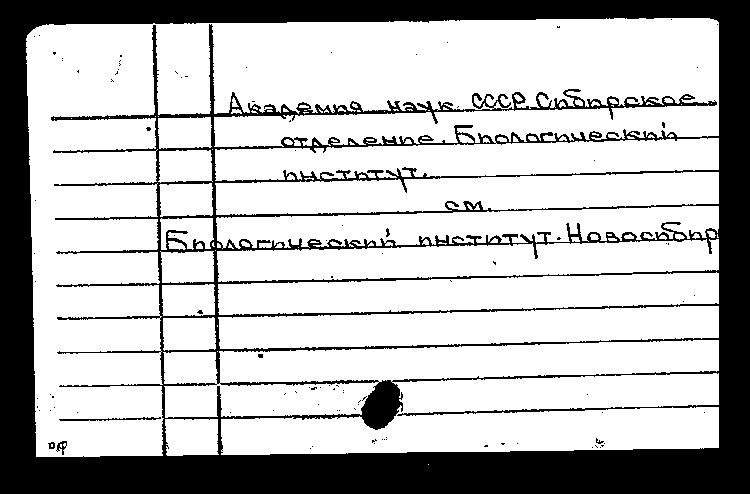 Академия наук СССР. Сибирское
отделение. Биологический
институт.
см.
Биологический институт. Новосибир